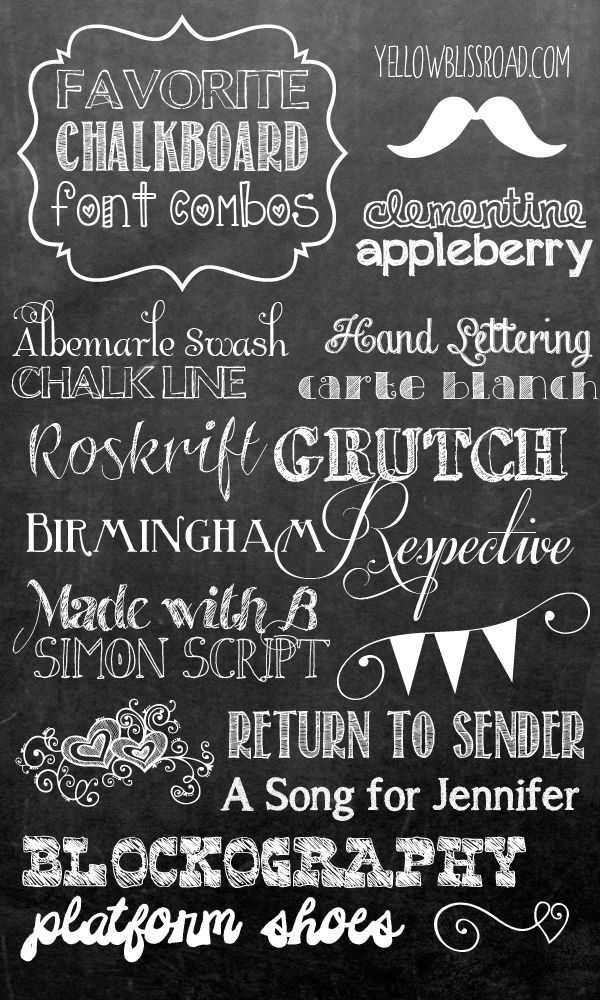 FAVORITE
CHALKBOARD
font combos
YELLOWBLISSROAD.COM
clementine
appleberry
Albemarle Swash
CHALK LINE
Hand Lettering
carte blanch
Roskrift
GRUTCH
BIRMINGHAM
Respective
Made with B
SIMON SCRIPT
RETURN TO SENDER
A Song for Jennifer
BLOCKOGRAPHY
platform shoes